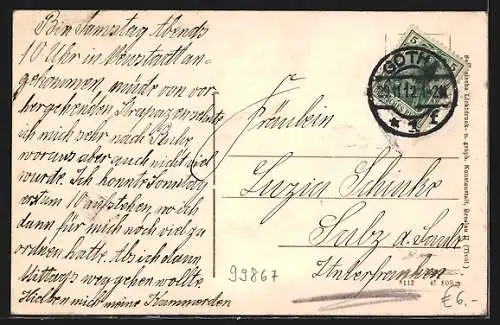 Bin Samstag Abends
10 Uhr in Neustadt an-
gekommen, müde von vor-
hergehenden Strapazen sehnte
ich mich sehr nach Ruhe
woraus aber auch nicht viel
wurde. Ich konnte Sonntag
erst um 10 aufstehen, wo ich
dann für mich noch viel zu
ordnen hatte. Als ich dann
Mittags weggehen wollte,
hielten mich meine Kameraden
5
5
GOTHA
Fräulein
Luzia Schinke
Sulz d. Saale
Unterfranken
99867
€6.-